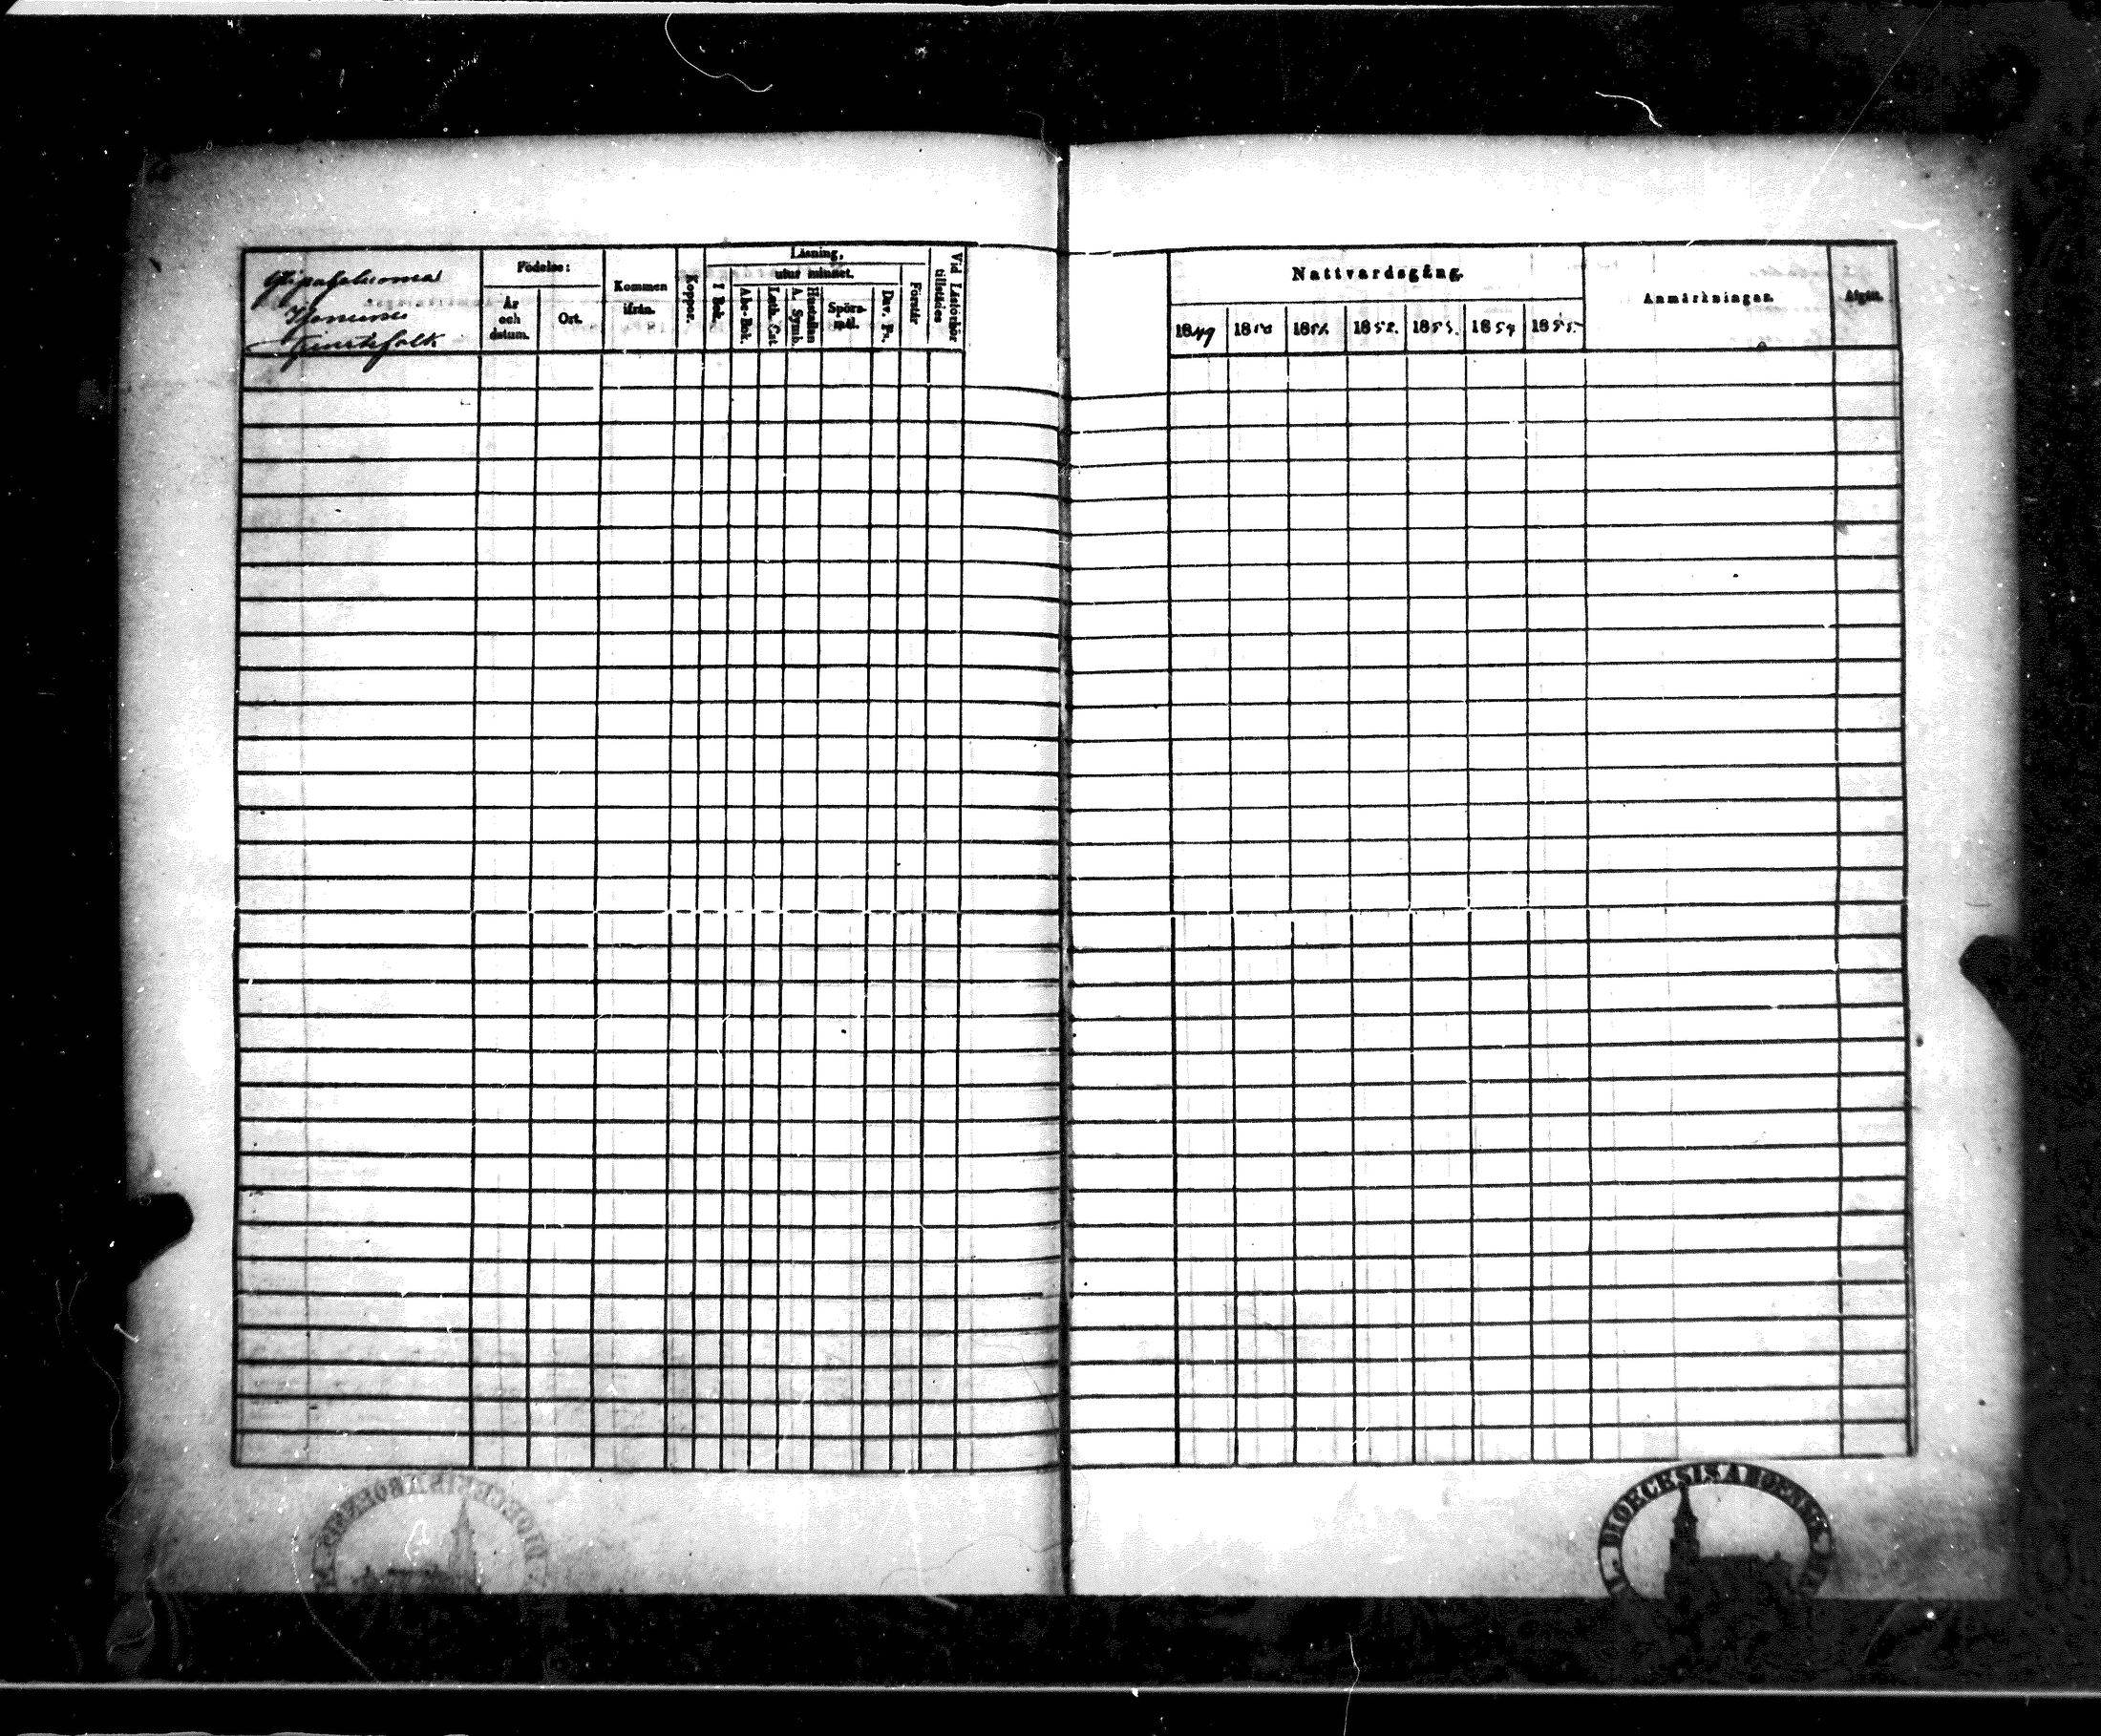 Födelse:
År
och
datum.
Ort.
Kommen
ifrån.
Koppor.
Läsning,
utur minnet.
I Bok.
Abc-Bok.
Luth. Cat
Hustaflan
A. Symb.
Spörs-
mål.
Dav. Ps.
Förstår
Vid Läsförhör
tillstädes
Nattvardsgång.
1849 1850 1851. 1852. 1853. 1854 1855.
Anmärkningar.
Afgått.
DIOECESIS ABOENSIS